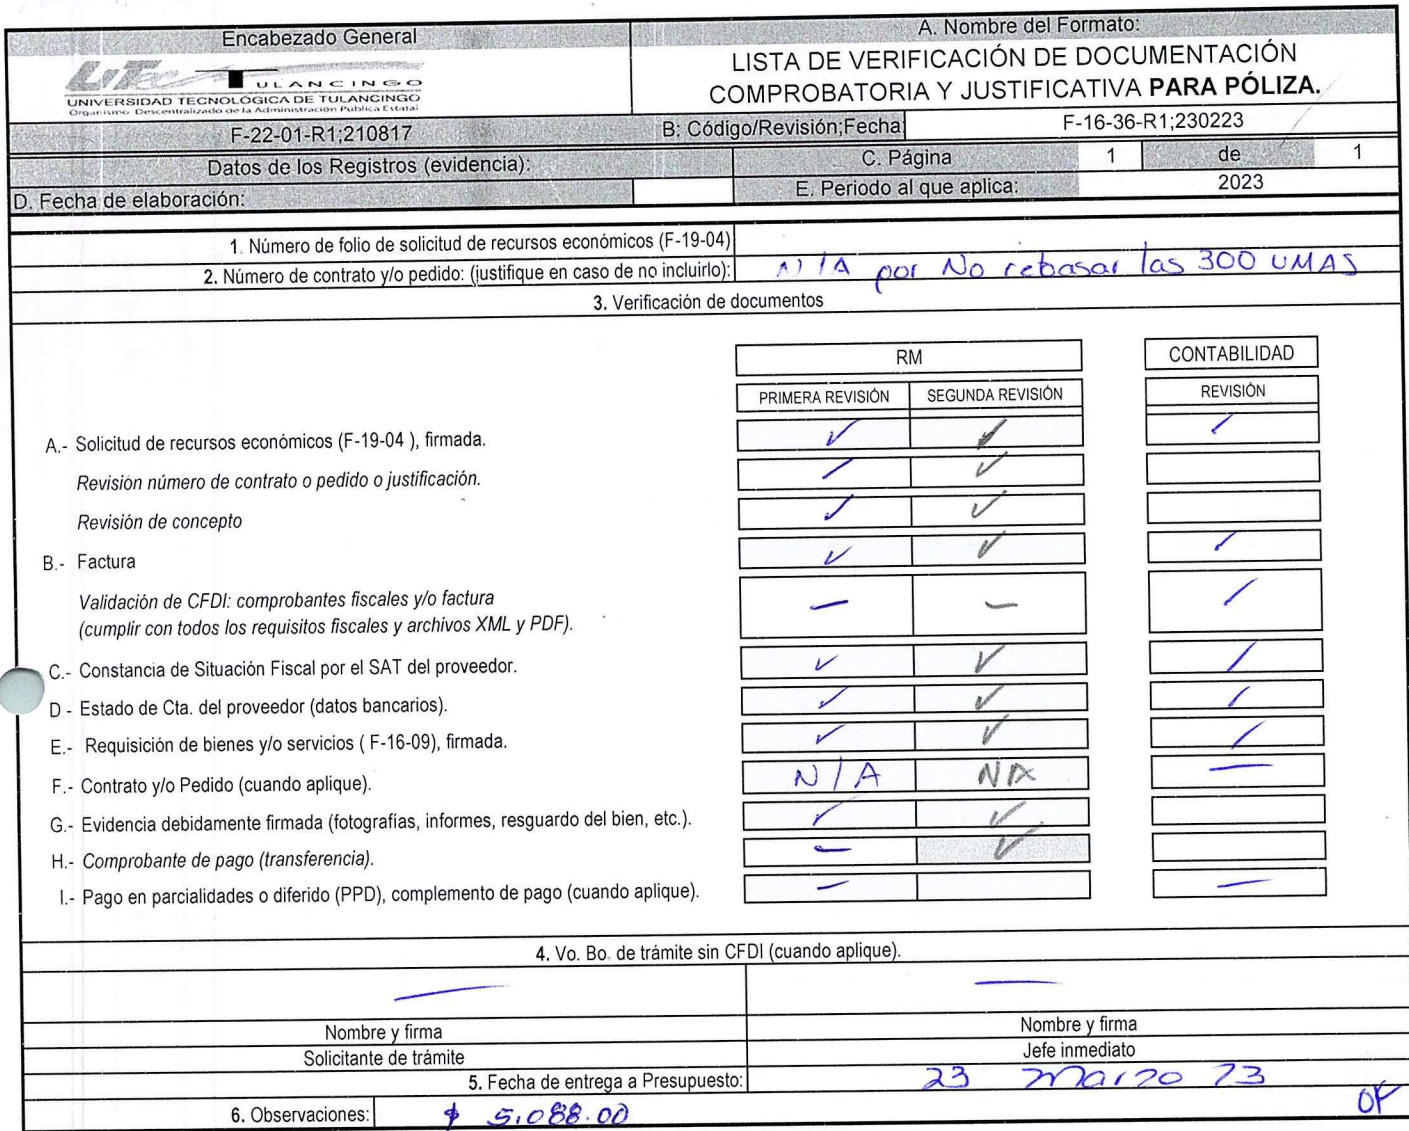 Encabezado General
A. Nombre del Formato:
UTec TULANCINGO
UNIVERSIDAD TECNOLÓGICA DE TULANCINGO
Organismo Descentralizado de la Administración Pública Estatal
LISTA DE VERIFICACIÓN DE DOCUMENTACIÓN
COMPROBATORIA Y JUSTIFICATIVA PARA PÓLIZA.
F-22-01-R1;210817
B: Código/Revisión;Fecha
F-16-36-R1;230223
Datos de los Registros (evidencia):
C. Página
1
de
1
D. Fecha de elaboración:
E. Periodo al que aplica:
2023
1. Número de folio de solicitud de recursos económicos (F-19-04)
2. Número de contrato y/o pedido: (justifique en caso de no incluirlo):
N/A por No rebasar las 300 UMAS
3. Verificación de documentos
RM
CONTABILIDAD
PRIMERA REVISIÓN
SEGUNDA REVISIÓN
REVISIÓN
A.- Solicitud de recursos económicos (F-19-04 ), firmada.
Revisión número de contrato o pedido o justificación.
Revisión de concepto
B.- Factura
Validación de CFDI: comprobantes fiscales y/o factura
(cumplir con todos los requisitos fiscales y archivos XML y PDF).
C.- Constancia de Situación Fiscal por el SAT del proveedor.
D - Estado de Cta. del proveedor (datos bancarios).
E.- Requisición de bienes y/o servicios ( F-16-09), firmada.
F.- Contrato y/o Pedido (cuando aplique).
N/A
NA
G.- Evidencia debidamente firmada (fotografías, informes, resguardo del bien, etc.).
H.- Comprobante de pago (transferencia).
I.- Pago en parcialidades o diferido (PPD), complemento de pago (cuando aplique).
4. Vo. Bo. de trámite sin CFDI (cuando aplique).
Nombre y firma
Nombre y firma
Solicitante de trámite
Jefe inmediato
5. Fecha de entrega a Presupuesto:
23 Marzo 23
6. Observaciones:
$ 5,088.00